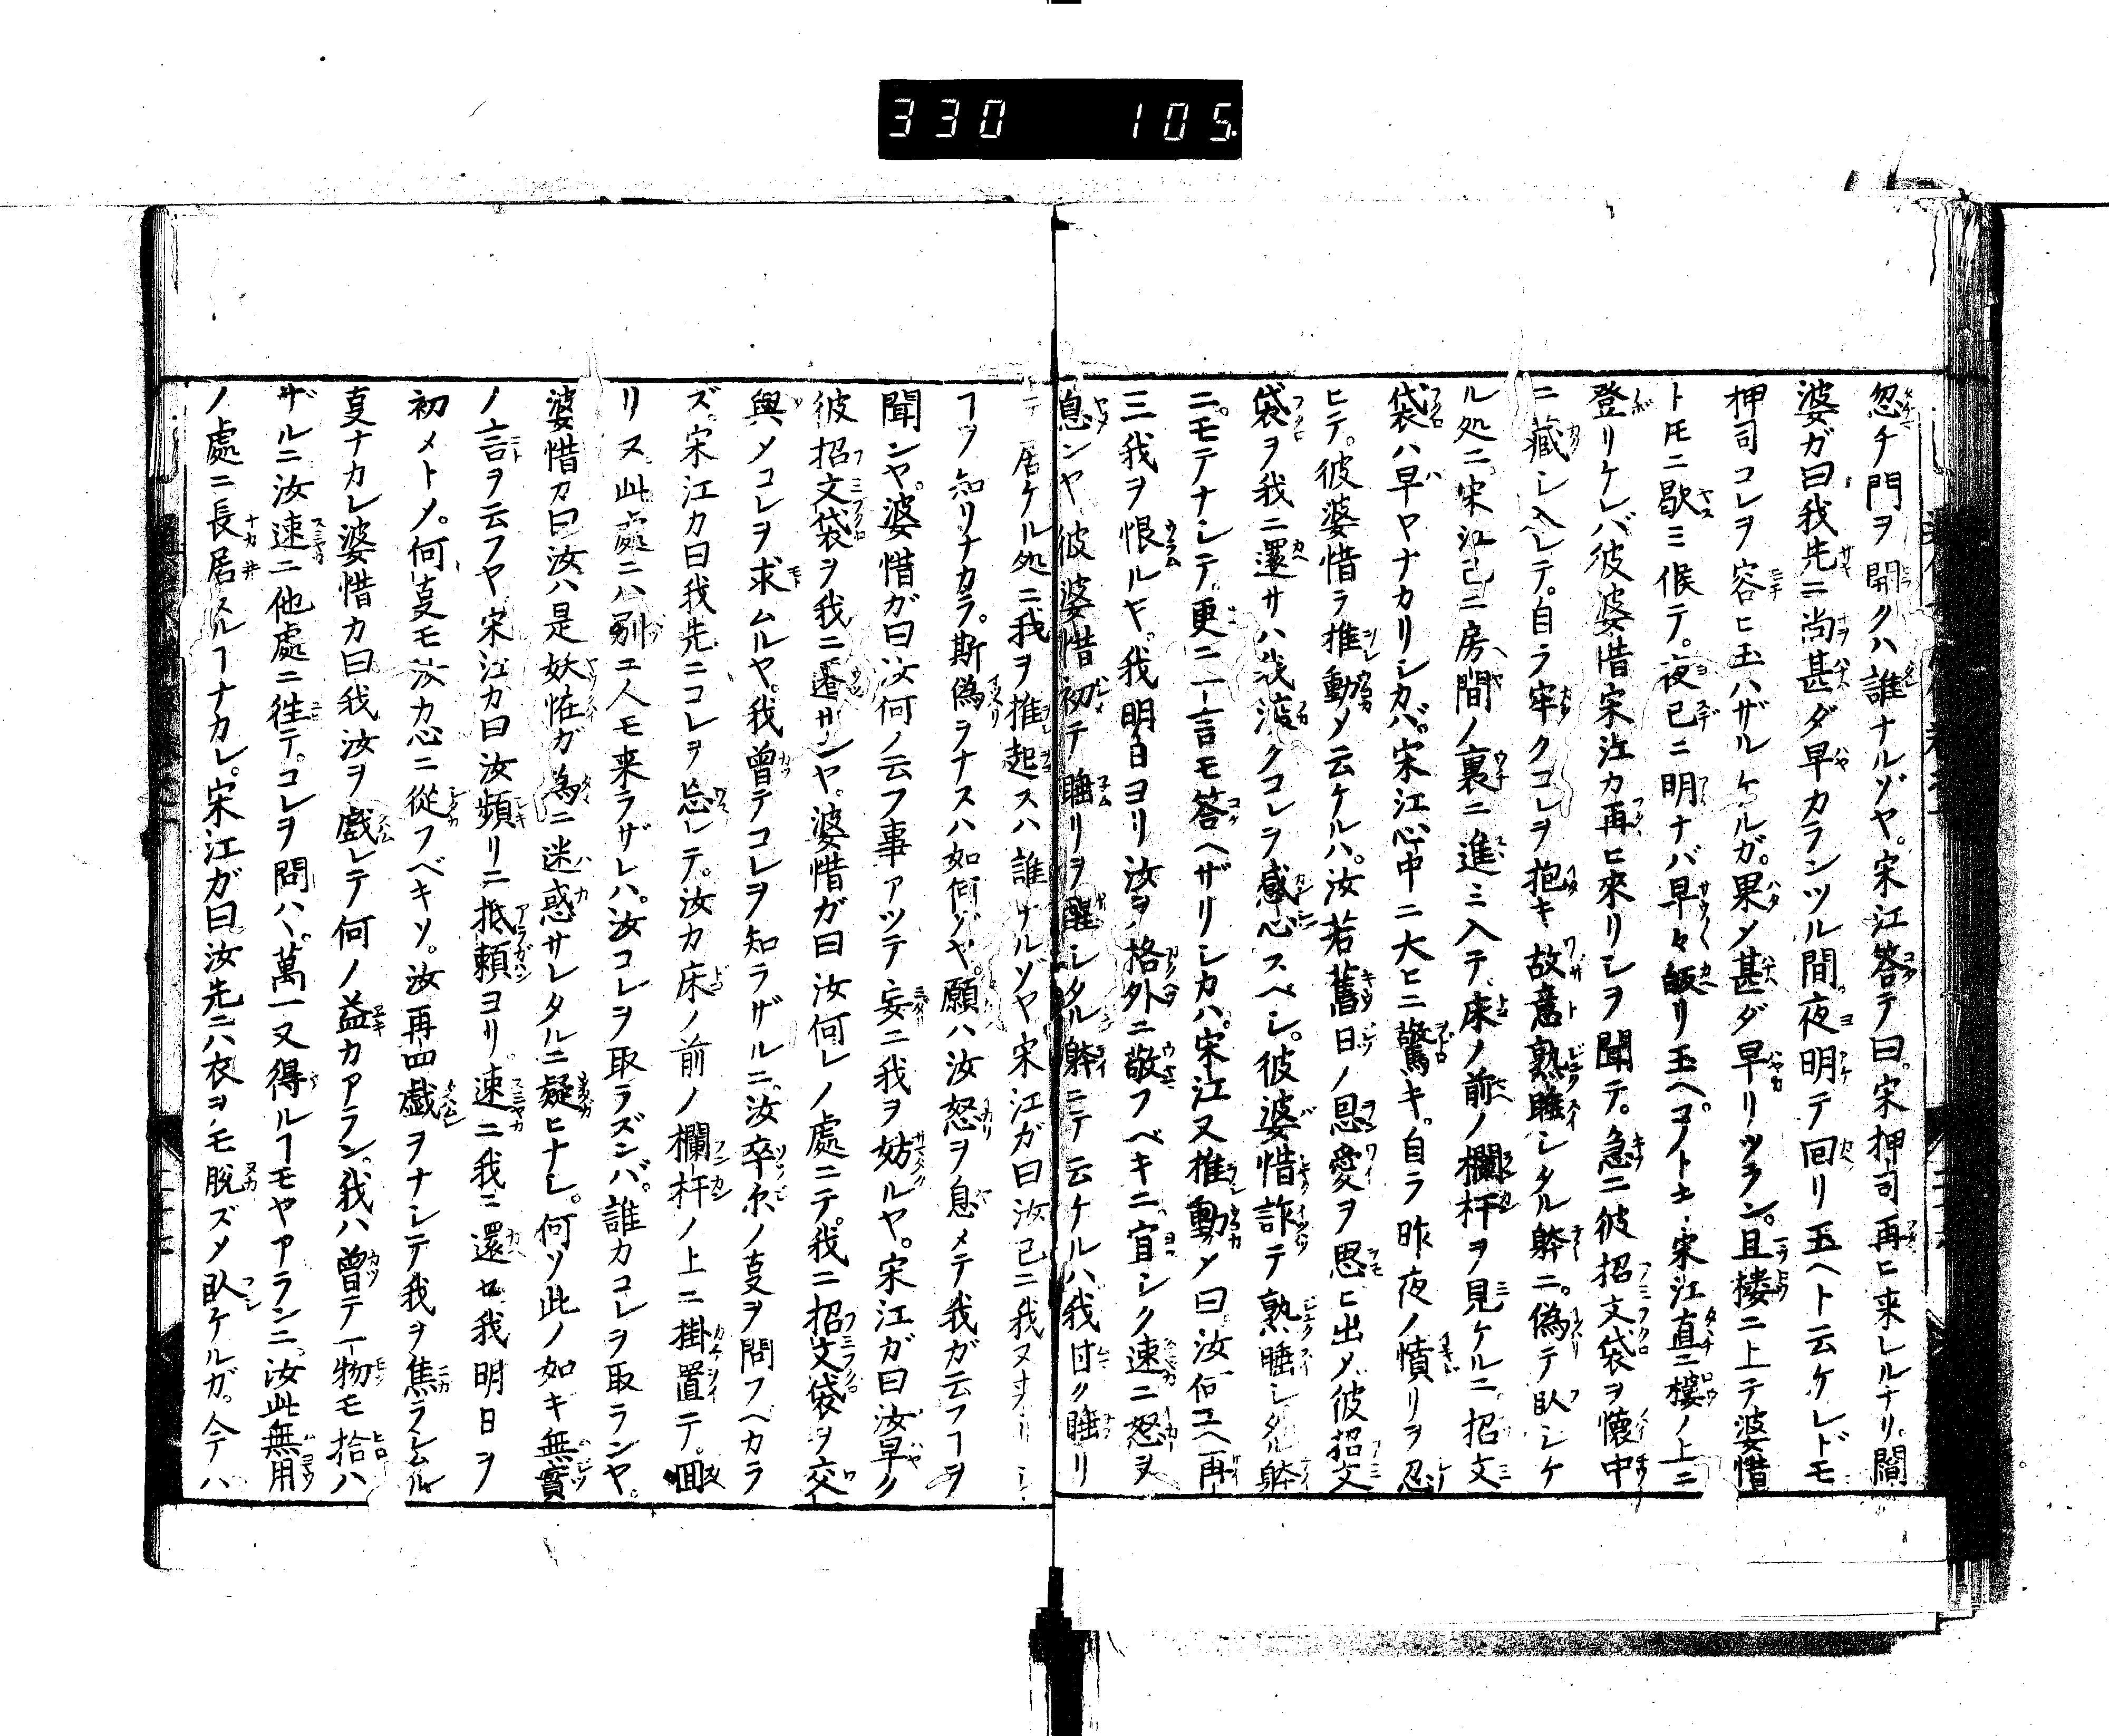 330 105
忽チ門ヲ開クハ誰ナルゾヤ。宋江答テ曰。宋押司再ヒ来レルナリ。閻
婆ガ曰我先ニ尚甚ダ早カランツル間夜明テ回リ玉ヘト云ケレドモ
押司コレヲ容ヒ玉ハザルケルガ。果メ甚ダ早リツラン。且楼ニ上テ婆惜
トモニ歇ミ候テ。夜已ニ明ナバ早々皈リ玉ヘ。宋江直ニ樓ノ上ニ
登リケレバ彼婆惜宋江カ再ヒ來リシヲ聞テ。急ニ彼招文袋ヲ懐中
ニ藏シ入レテ。自ラ牢クコレヲ抱キ故意熟睡シタル躰ニ。偽テ臥シケ
ル処ニ。宋江已ニ房間ノ裏ニ進ミ入テ。床ノ前ノ欄杆ヲ見ケルニ。招文
袋ハ早ヤナカリシカバ。宋江心中ニ大ヒニ驚キ。自ラ昨夜ノ憤リヲ忍
ヒテ。彼婆惜ヲ推動メ云ケルハ。汝若舊日ノ恩愛ヲ思ヒ出メ彼招文
袋ヲ我ニ還サハ我深クコレヲ感心スベシ。彼婆惜詐テ熟睡シタル躰
ニモテナシテ。更ニ一言モ答ヘザリシカハ。宋江又推動メ曰汝何ユヘ再
三我ヲ恨ルヤ。我明日ヨリ汝ヲ格外ニ敬フベキニ。宜シク速ニ怒ヲ
息ンヤ彼婆惜初テ睡リヲ醒シタル躰ニテ云ケルハ我甘ク睡リ
テ居ケル処ニ我ヲ推起スハ誰ナルゾヤ宋江ガ曰汝已ニ我
ヿヲ知リナカラ。斯偽ヲナスハ如何ゾヤ。願ハ汝怒ヲ息メテ我ガ云フヿヲ
聞ンヤ。婆惜ガ曰汝何ノ云フ事アツテ妄ニ我ヲ妨ルヤ。宋江ガ曰汝早ク
彼招文袋ヲ我ニ還サンヤ。婆惜ガ曰汝何レノ處ニテ。我ニ招文袋ヲ交
與メコレヲ求ムルヤ。我曾テコレヲ知ラザルニ。汝卒尓ノ叓ヲ問フベカラ
ズ。宋江カ曰我先ニコレヲ忘レテ。汝カ床ノ前ノ欄杆ノ上ニ掛置テ。回
リヌ此處ニハ別ニ人モ来ラザレハ。汝コレヲ取ラズンバ。誰カコレヲ取ランヤ。
婆惜カ曰汝ハ是妖怪ガ為ニ迷惑サレタルニ疑ヒナシ。何ソ此ノ如キ無實
ノ言ヲ云フヤ宋江カ曰汝頻リニ抵頼ヨリ。速ニ我ニ還セ我明日ヲ
初メトメ。何叓モ汝カ心ニ從フベキソ。汝再四戯ヲナシテ我ヲ焦ラシムル
叓ナカレ婆惜カ曰我汝ヲ戲レテ何ノ益カアラン。我ハ曾テ一物モ拾ハ
ザルニ汝速ニ他處ニ徃テ。コレヲ問ハヽ。萬一又得ルヿモヤアランニ。汝此無用
ノ處ニ長居スルヿナカレ。宋江ガ曰汝先ニハ衣ヲモ脱ズメ臥ケルガ。今ハ